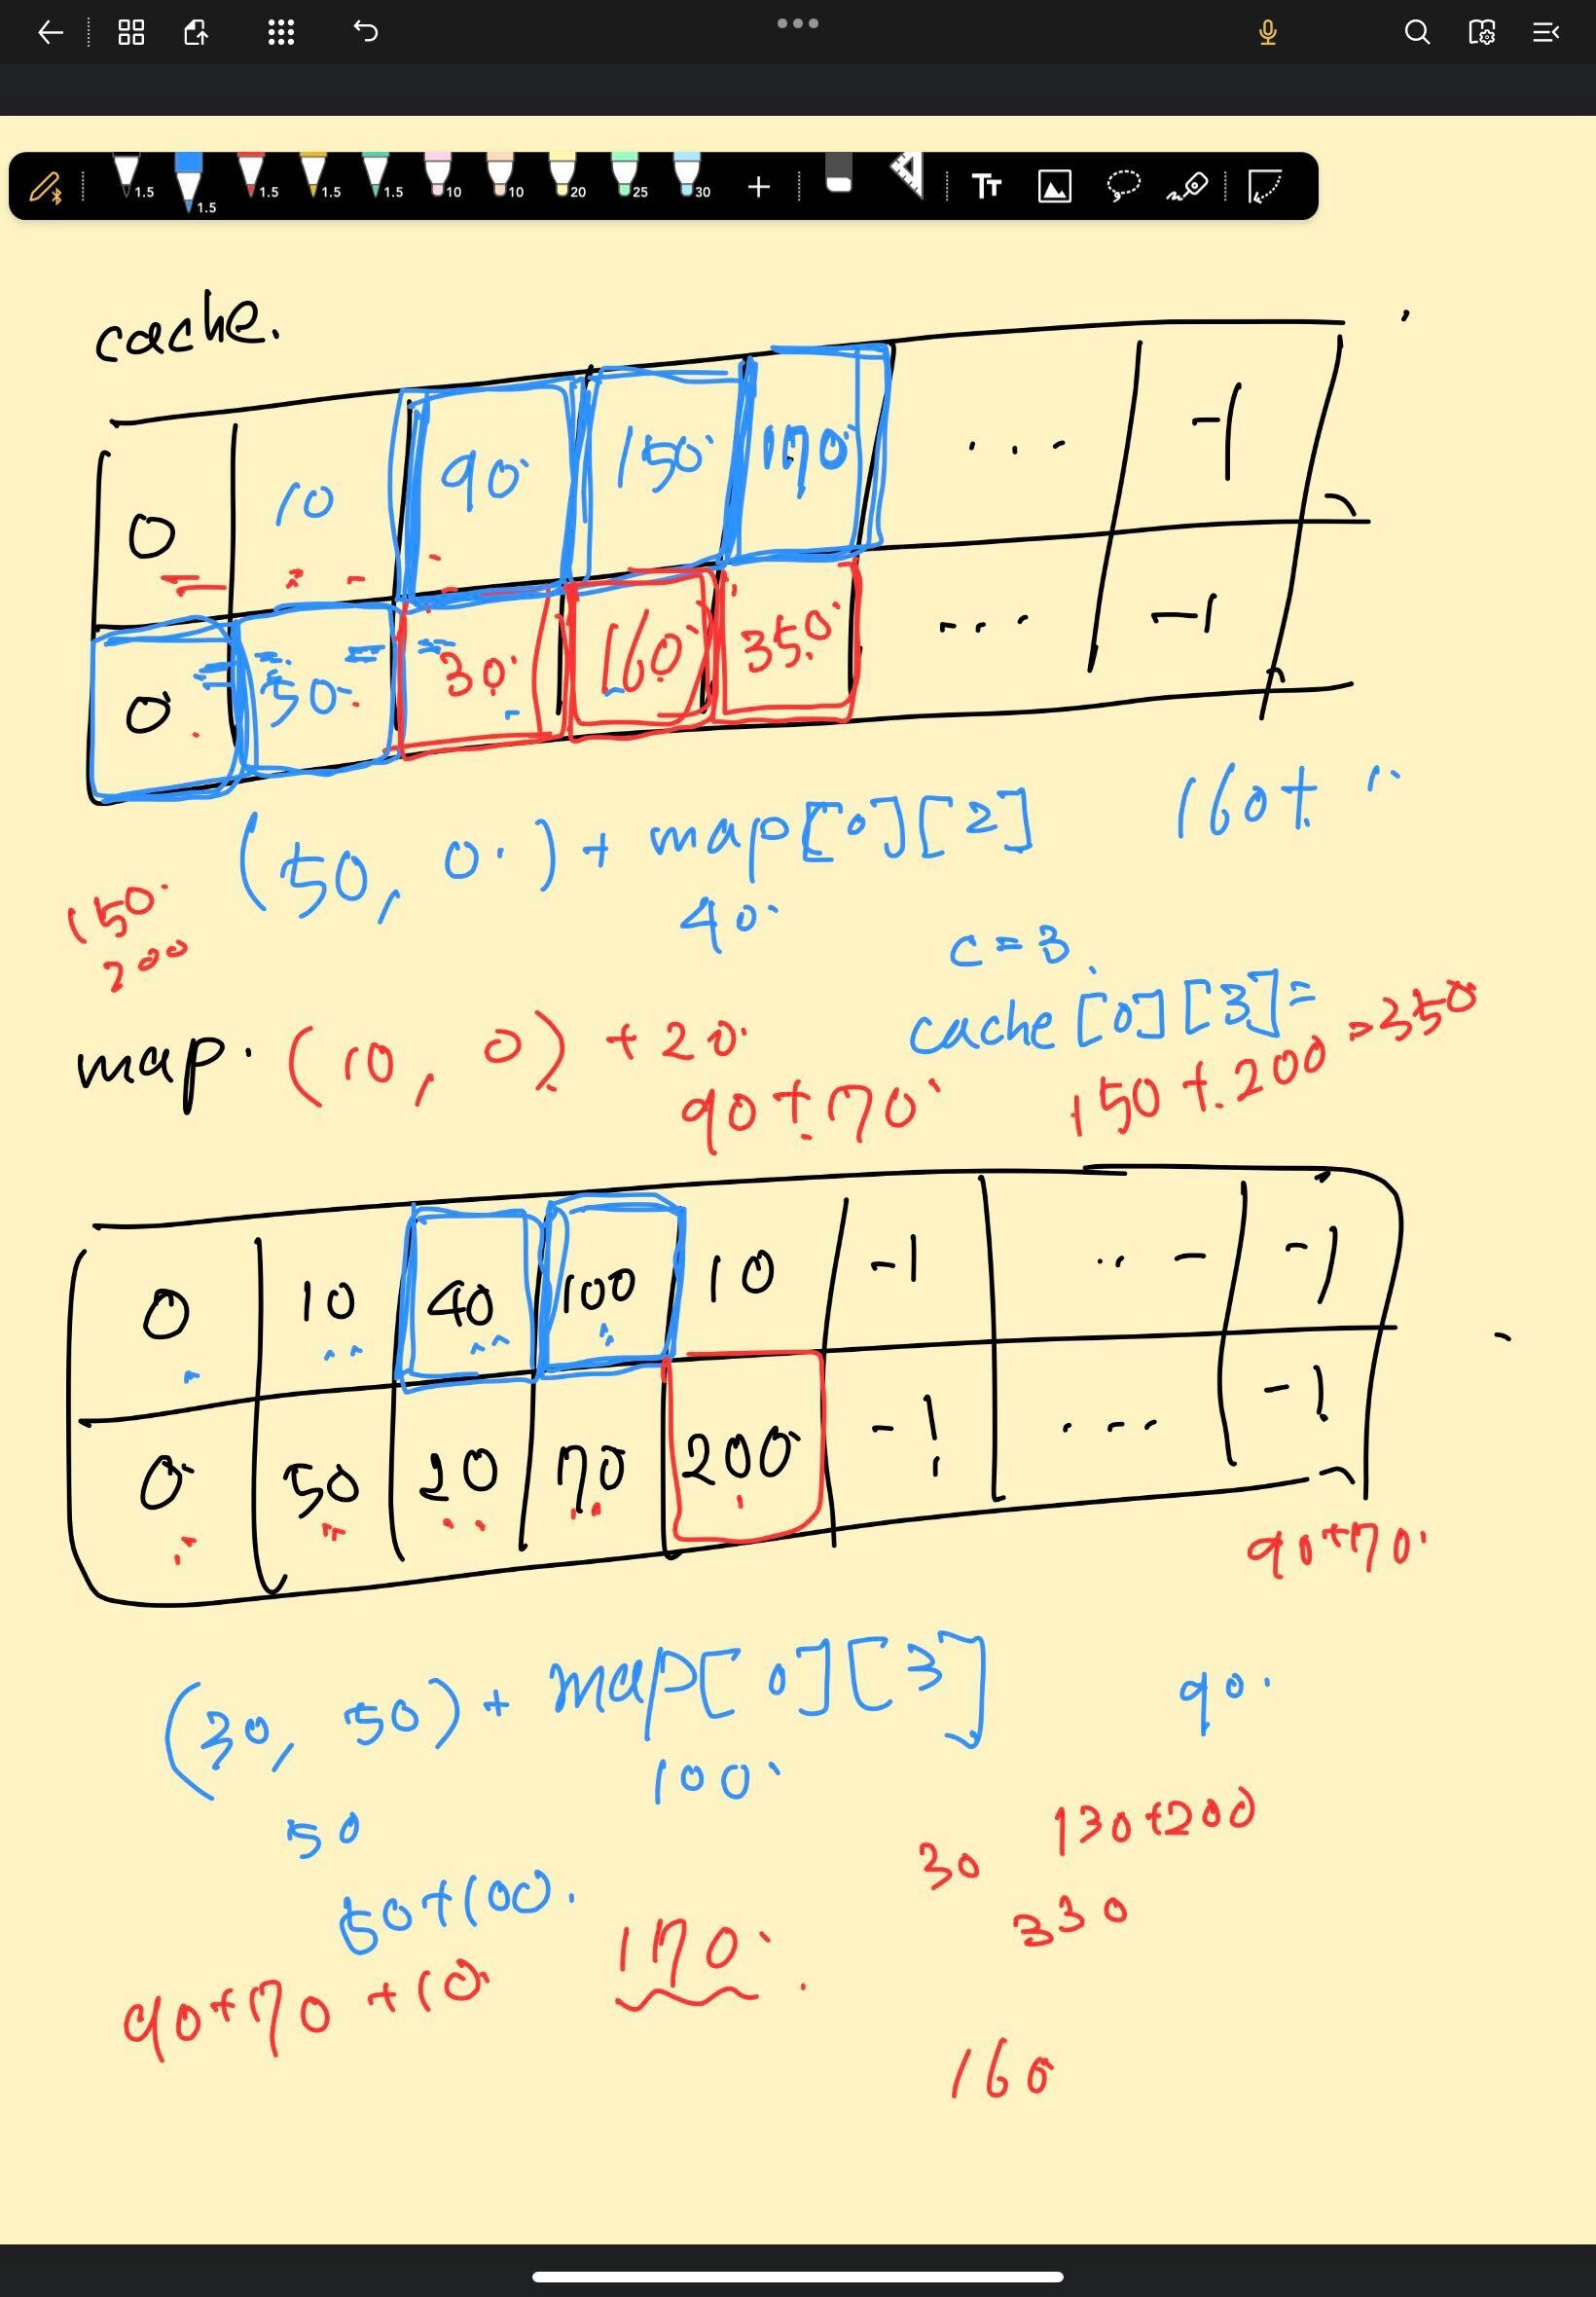 1.5 1.5 1.5 1.5 1.5 10 10 20 25 30 + Tt
cache.
0 10 90 150 170 ... -1
0 50 30 160 350 ... -1
(50, 0) + map[0][2] 160+
40
150
200
c=3
cache[0][3]=
map. (10, 0) + 20
90+70
150+200=350
0 10 40 100 10 -1 ... -1
0 50 20 70 200 -1 ... -1
90+70
(30, 50) + map[0][3] 90
100
50
130+200
30
50+100.
330
170
90+70+10
160